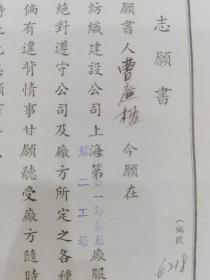 志願書
願書人曹 今願在
紡織建設公司上海第 廠服
第二工場
絕對遵守公司及廠方所定之各種
倘有違背情事甘願聽受廠方隨時
(編號
6218